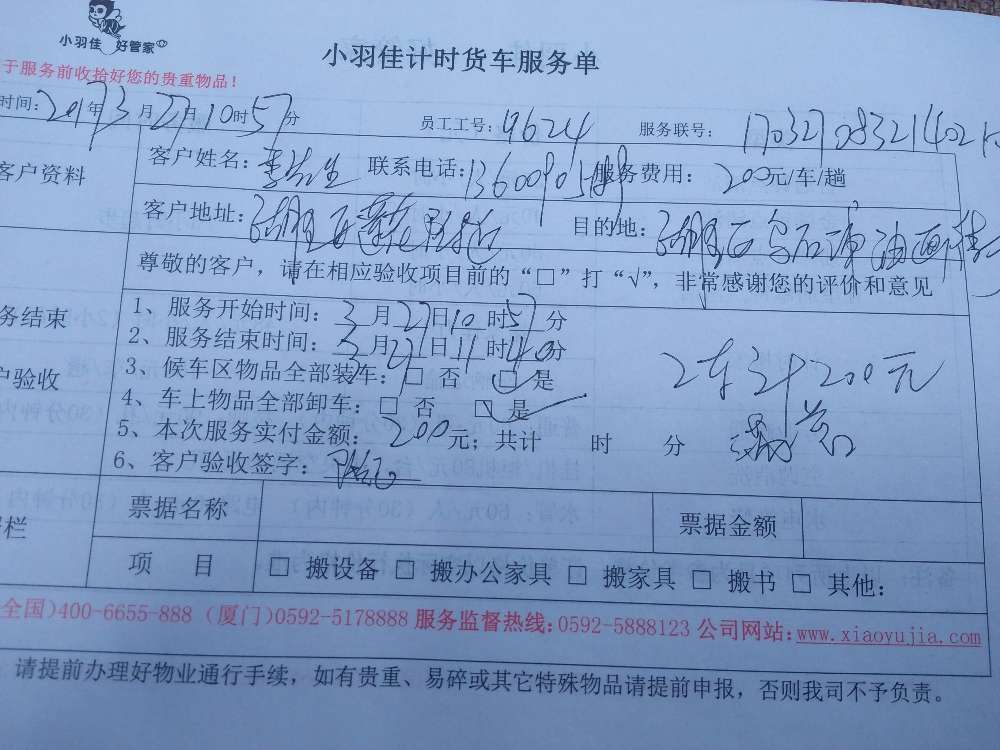 小羽佳 好管家
小羽佳计时货车服务单
于服务前收拾好您的贵重物品！
时间：2017年3月27日10时57分 员工工号：9624 服务联号：
客户资料 客户姓名： 联系电话： 服务费用：200元/车/趟
客户地址：湖里区 目的地：湖里区乌石浦油画街
尊敬的客户，请在相应验收项目前的“□”打“√”，非常感谢您的评价和意见
务结束
户验收
1、服务开始时间：3月27日10时57分
2、服务结束时间：3月27日11时40分
3、候车区物品全部装车：□ 否 ☑ 是
4、车上物品全部卸车：□ 否 ☑ 是
2车计200元
5、本次服务实付金额：200元；共计 时 分
6、客户验收签字：
栏 票据名称 票据金额
项 目 □ 搬设备 □ 搬办公家具 □ 搬家具 □ 搬书 □ 其他：
全国)400-6655-888 (厦门)0592-5178888 服务监督热线:0592-5888123 公司网站:www.xiaoyujia.com
请提前办理好物业通行手续，如有贵重、易碎或其它特殊物品请提前申报，否则我司不予负责。